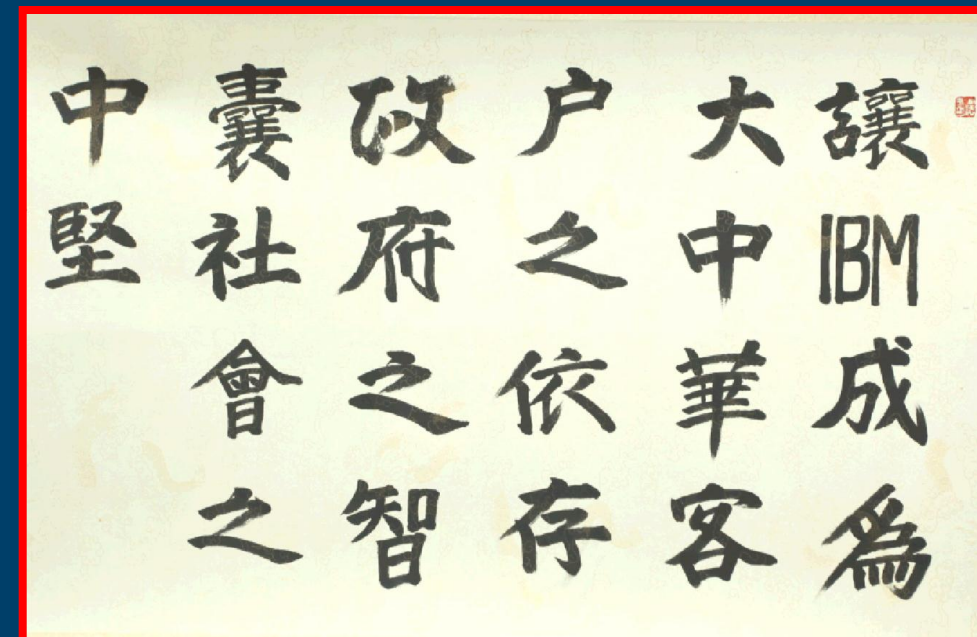 讓IBM成爲
大中華客
户之依存
政府之智
囊社會之
中堅